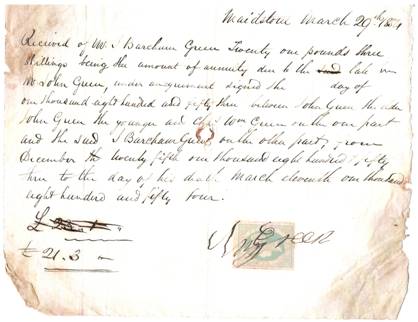 Maidstone March 29th 1854
Received of Mr S Barcham Green Twenty one pounds three
shillings being the amount of annuity due to the late
Mr John Green, under agreement signed the day of
one thousand eight hundred and fifty three between John Green the elder
John Green the younger and Wm Green on the one part
and the said S Barcham Green on the other part, from
December the twenty fifth one thousand eight hundred & fifty
three to the day of his death March eleventh one thousand
eight hundred and fifty four.
£
£ 21.3
Green